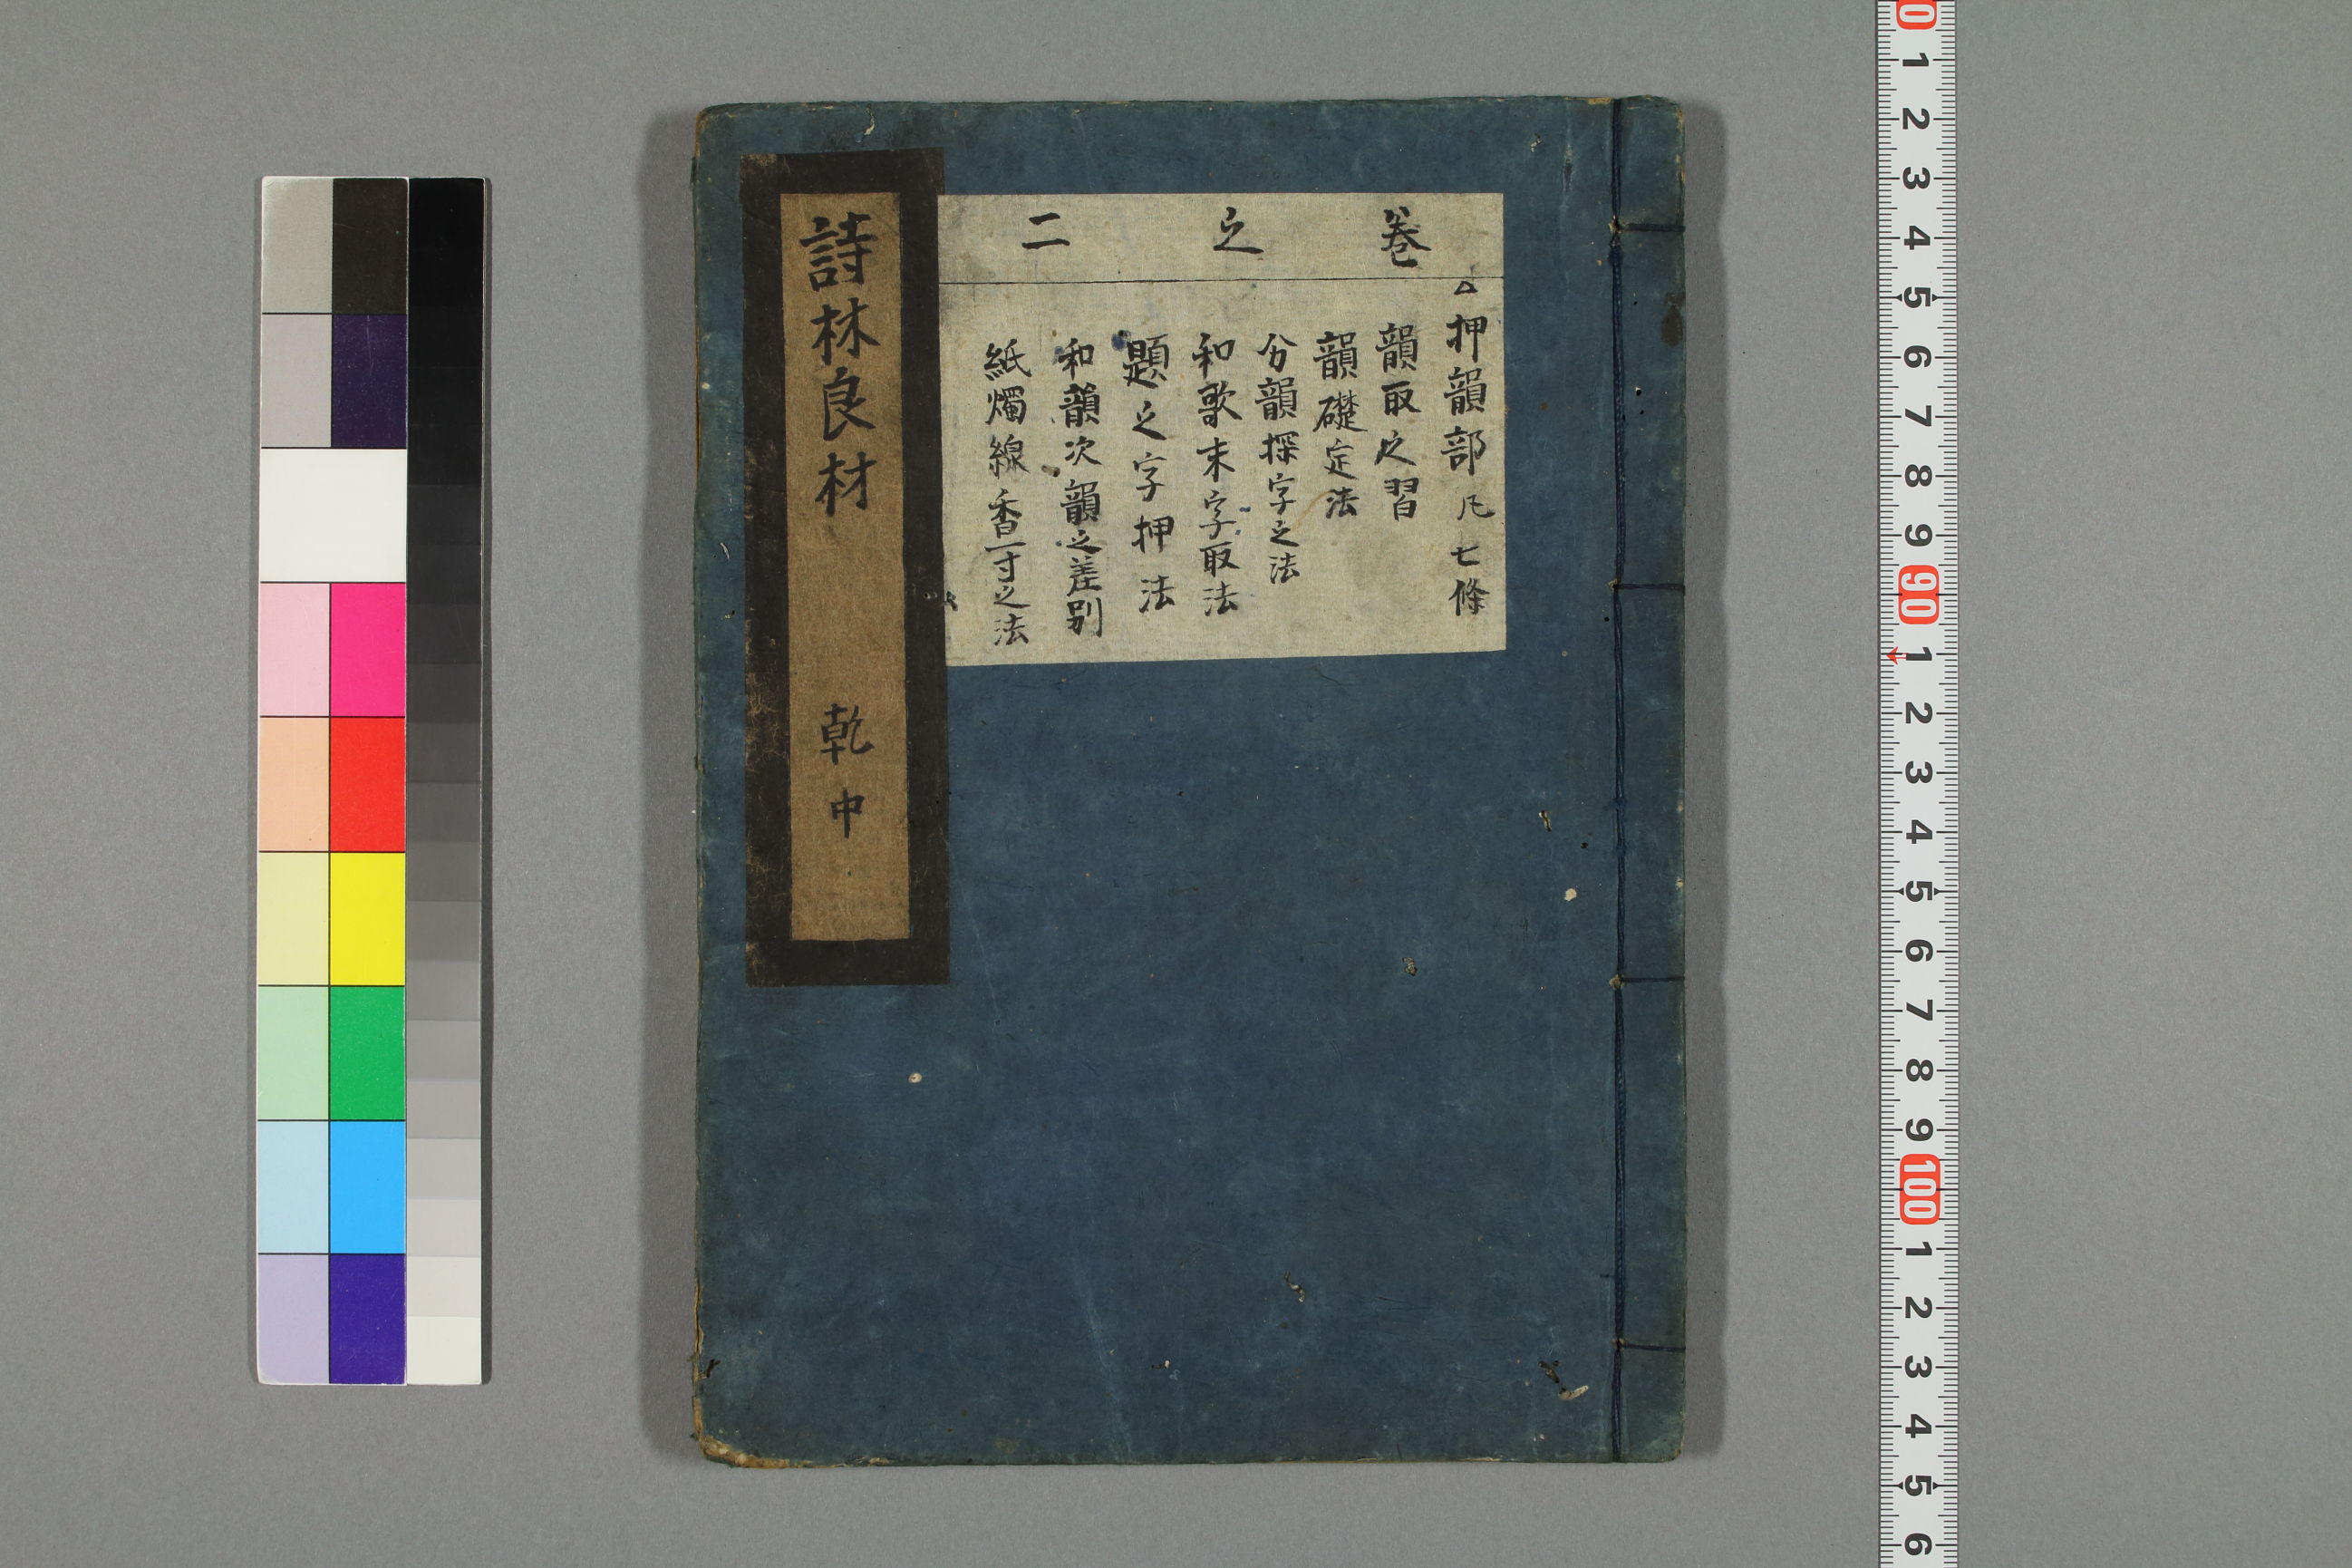 詩林良材　乾中
巻之二
△押韻部 凡七條
韻取之習
韻礎定法
分韻探字之法
和歌末字取法
題之字押法
和韻次韻之差別
紙燭線香一寸之法
0 1 2 3 4 5 6 7 8 9 90 1 2 3 4 5 6 7 8 9 100 1 2 3 4 5 6